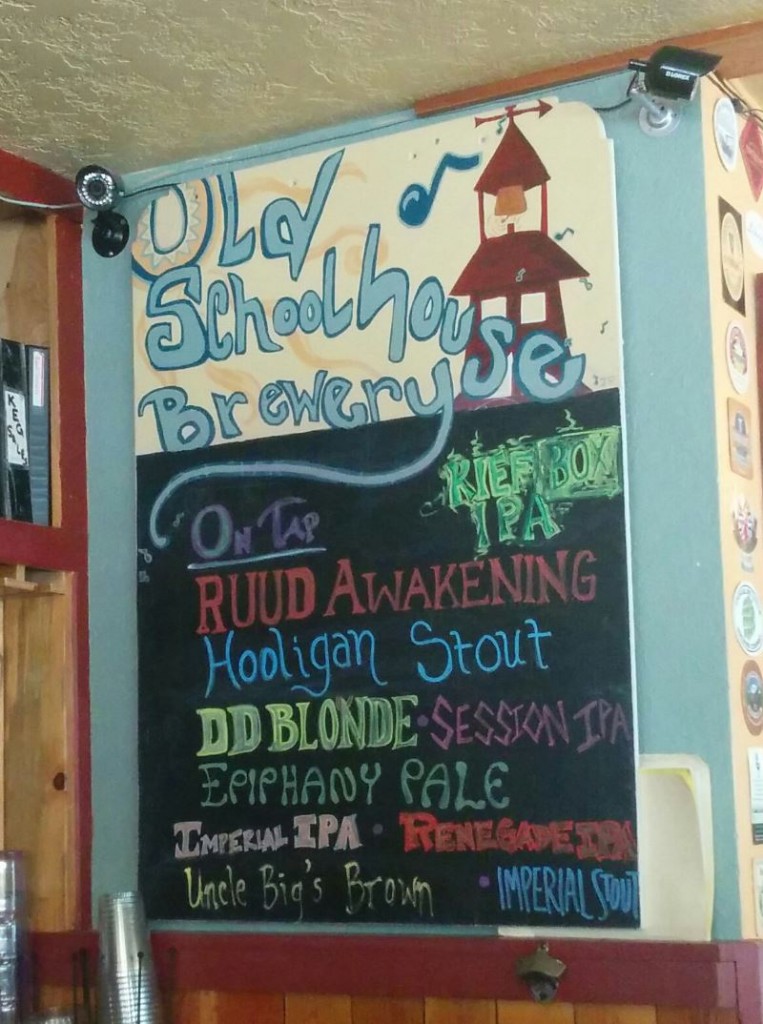 Old
Schoolhouse
Brewery
RIEF BOX
IPA
ON TAP
RUUD AWAKENING
Hooligan Stout
DD BLONDE · SESSION IPA
EPIPHANY PALE
IMPERIAL IPA · RENEGADE IPA
Uncle Big's Brown · IMPERIAL STOUT
KEG
SALES
LOREX